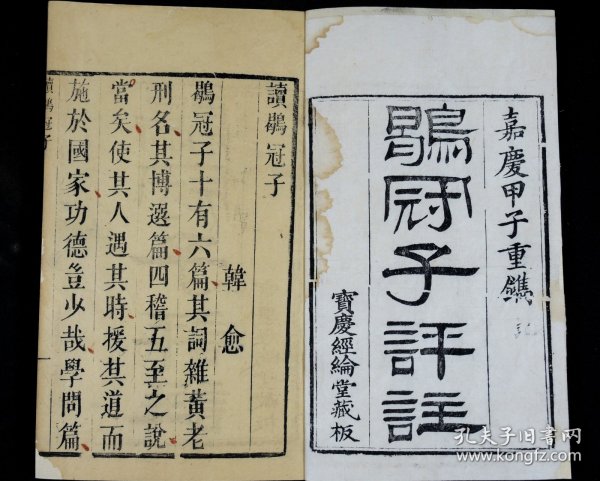 嘉慶甲子重鐫
鶡冠子評註
寶慶經綸堂藏板
讀鶡冠子
韓愈
鶡冠子十有六篇其詞雜黃老
刑名其博選篇四稽五至之說
當矣使其人遇其時援其道而
施於國家功德豈少哉學問篇
讀鶡冠子
孔夫子旧书网
www.kongfz.com